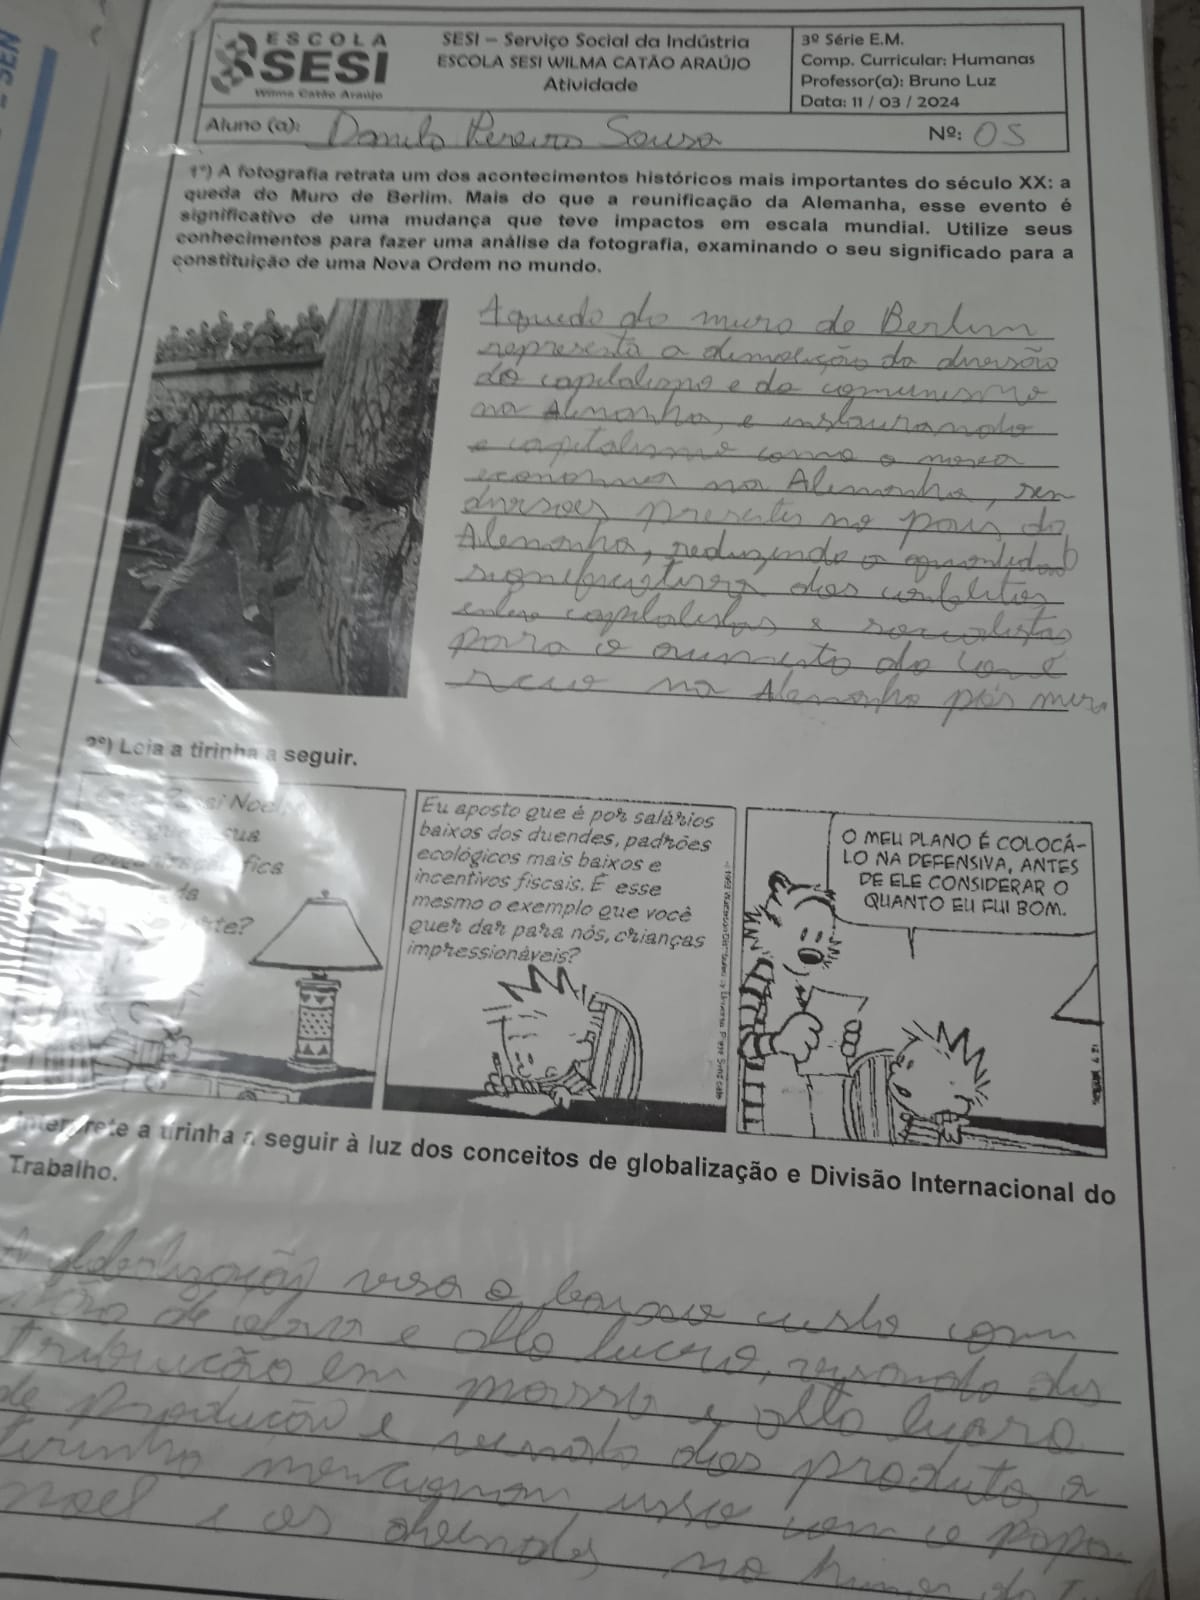 SEN
ESCOLA
SESI
Wilma Catão Araújo
SESI – Serviço Social da Indústria
ESCOLA SESI WILMA CATÃO ARAÚJO
Atividade
3º Série E.M.
Comp. Curricular: Humanas
Professor(a): Bruno Luz
Data: 11 / 03 / 2024
Aluno (a): Danilo Pereira Sousa
Nº: 05
1º) A fotografia retrata um dos acontecimentos históricos mais importantes do século XX: a
queda do Muro de Berlim. Mais do que a reunificação da Alemanha, esse evento é
significativo de uma mudança que teve impactos em escala mundial. Utilize seus
conhecimentos para fazer uma análise da fotografia, examinando o seu significado para a
constituição de uma Nova Ordem no mundo.
A queda do muro de Berlim
representa a demolição da divisão
do capitalismo e do comunismo
na Alemanha, e instaurando
o capitalismo como a nova
economia na Alemanha, sem
divisões presentes no país da
Alemanha, reduzindo a quantidade
significativa dos conflitos
entre capitalistas e socialistas
para o aumento do
na Alemanha pós muro
2º) Leia a tirinha a seguir.
Noel,
sua
Eu aposto que é por salários
baixos dos duendes, padrões
ecológicos mais baixos e
incentivos fiscais. É esse
mesmo o exemplo que você
quer dar para nós, crianças
impressionáveis?
O MEU PLANO É COLOCÁ-
LO NA DEFENSIVA, ANTES
DE ELE CONSIDERAR O
QUANTO EU FUI BOM.
Interprete a tirinha a seguir à luz dos conceitos de globalização e Divisão Internacional do
Trabalho.
A globalização visa o baixo custo com
de obra e alto lucro, visando dis
tribuição em massa e alto lucro
de produção e dos produtos, a
tirinha isso com o papai
noel e os duendes, no